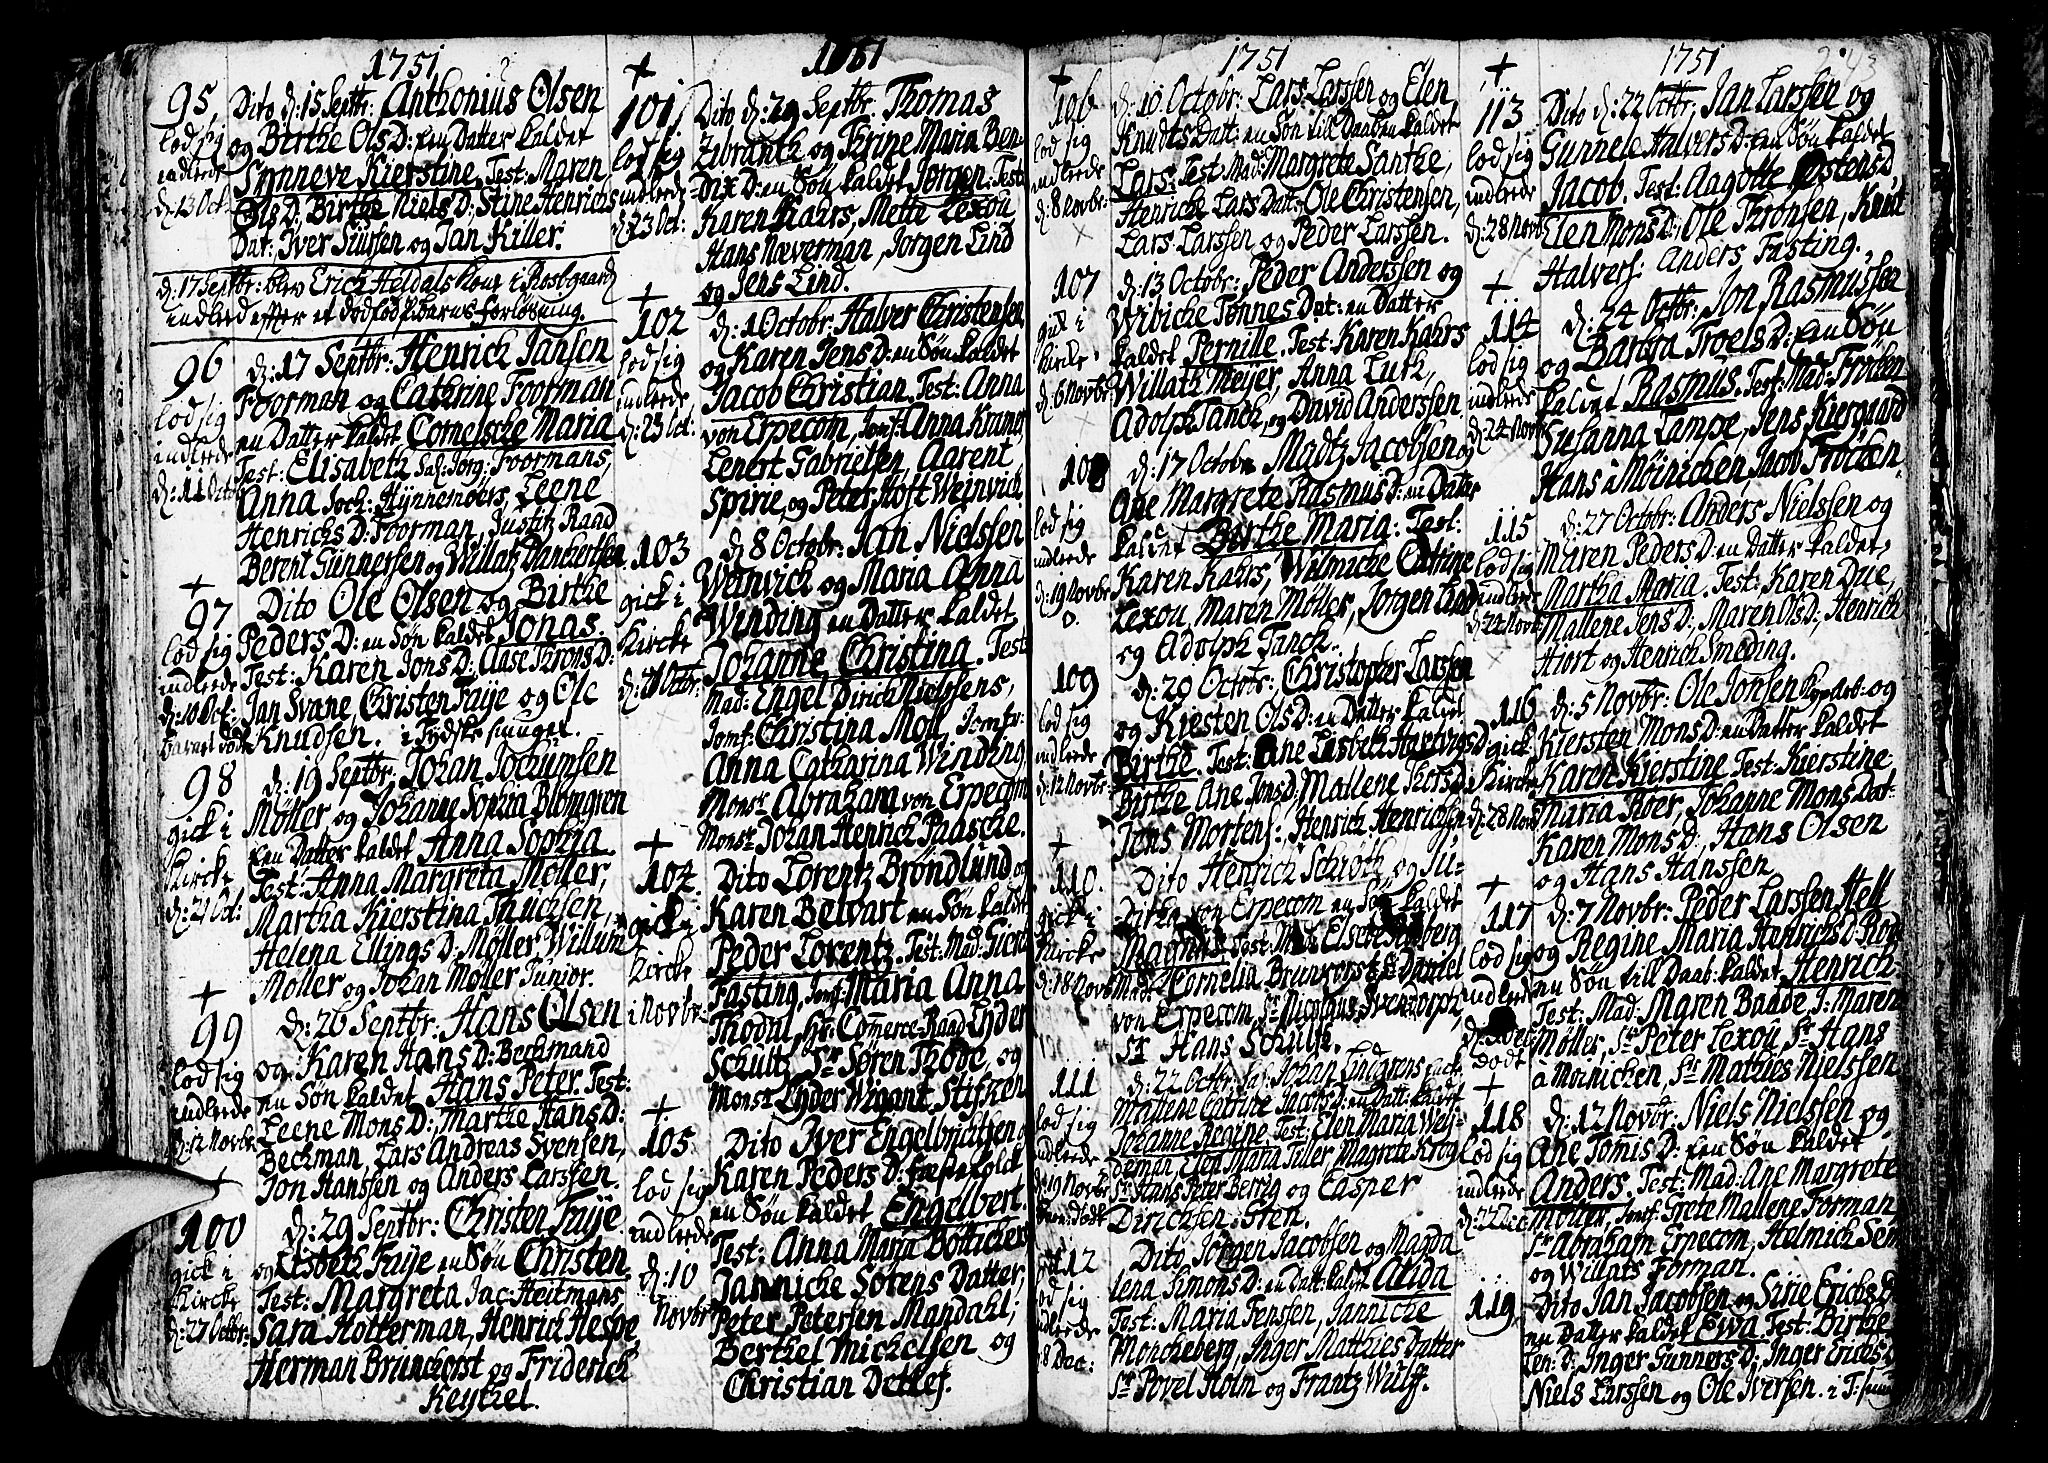 1751
95, Dito d: 15 Septbr: Anthonius Olsen
lod sig og Birthe Ols D: een Datter kaldet
indlede Synneve Kierstine, Test: Maren
d: 13 Oct: Ols D: Birthe Niels D: Stine Henrichs
Dat: Iver Siursen og Jan Killer.
d: 17 Septbr: blev Erich Heldals Kone i Roslgaard
indled effter et dødfød Barns forløsning.
96 d: 17 Septbr: Henrich Jansen
lod sig Foorman og Cathrine Foorman
indlede en Datter kaldet Cornelsche Maria
d: 11 Octb Test: Elisabeth Sal: Jørg: Foormans,
Anna Joch: Hÿnnemöers Leene
Henrichs D: Foorman, Justitz Raad
Berent Gunnersen og Willatz Danckertsen
+
97 Dito Ole Olsen og Birthe
lod sig Peders D: en Søn kaldet Jonas.
indlede Test: Karen Jons D: Aase Throns D:
d: 10 Oct: Jan Svane, Christen Faÿe og Ole
barnet døde Knudsen. i Tydskesmuget.
98 d: 19 Septbr: Johan Jochumsen
gick i Møller og Johanne Sophia Blomgreen
Kircke een Datter kaldet Anna Sophia.
d: 21 Oct: Test: Anna Margreta Møller,
Martha Kierstina Truchsen,
Helena Ellings D: Møller, Willum
Møller og Johan Møller Junior.
+
99 d: 26 Septbr: Hans Olsen
lod sig og Karen Hans D: Beckmand
indlede en Søn kaldet Hans Peter. Test:
d: 12 Novbr Leene Mons D: Marthe Hans D:
Beckman, Lars Andreas Svensen,
Jon Hanssen og Anders Larssen.
+
100 d: 29 Septbr: Christen Faÿe
gick i og Lisbeth Faÿe en Søn Christen.
Kircke Test: Margreta Jac: Heitmans,
d: 27 Octbr: Sara Holterman, Henrich Hespe
Herman Brunckorst og Friderich
Keysel.
1751
+
101, Dito d: 29 Septbr: Thomas
lod sig Zibranth og Thrine Maria Ben-
indlede dix D: en Søn kaldet Jørgen: Test:
d: 23 Oct: Karen Kahrs, Mette Lexou
Hans Næverman, Jørgen Lind
og Jens Lind.
+
102 d: 1 Octobr: Halver Christensen
lod sig og Karen Jens D: en Søn kaldet
indlede Jacob Christian, Test: Anna
d: 23 Oct: von Erpecom, Jomf: Anna Kramer
Lenert Gabrielsen, Aarent
Spirie, og Peter Hoft Weinvich
103 d: 8 Octobr: Jan Nielssen
gick i Weinvich og Maria Anna
Kircke Winding en Datter kaldet
Johanne Christina. Test:
Mad: Engel Dirich Nielssens,
Jomf: Christina Moll, Jomfr:
Anna Catharina Winding,
Monsr Abraham von Erpecom
Monsr Johan Henrich Paasche.
+
104. Dito Lorentz Brøndlund og
gick i Karen Beivart en Søn kaldet
Kircke Peder Lorentz. Test: Mad:
i Novbr: Fasting, Jomf: Maria Anna
Thodul, Hr: Commerce-Raad Lyder
Schultz, Sr Søren Thode, og
Monsr Lyder Wigant Stifken
+
105 Dito Iver Engelbrichtsen og
lod sig Karen Peders D:
indlede en Søn kaldet Engelbert.
d: 10 Test: Anna Maria Bötticher
Novbr Jannicke Sörens Datter,
Peter Petersen Mandahl;
Berthel Mickelsen og
Christian Detlef.
1751
+
106 d: 10 Octobr: Lars Larssen og Elen
lod sig Knudts Datt: en Søn till Daaben kaldet
indlede Lars: Test: Mad: Margrete Santhe,
d: 8 Novbr: Henriche Lars Datt: Ole Christensen,
Lars Larssen og Peder Larssen.
107 d: 13 Octobr: Peder Anderssen og
gick i Wibicke Tønnes Dat: en Datter
Kircke, kaldet Pernille. Test: Karen Kahrs
d: 6 Novbr Willath Meÿer, Anna Lutk,
Adolph Janck, og David Anderssen
108 d: 17 Octobr Madtz Jacobsen og
lod sig Ane Margrete Rasmus D: en Datter
indlede kaldet Berthe Maria: Test:
d: 19 Novbr Karen Kahrs, Wilmicke Catrine
Lexou, Maren Møller, Jørgen Lind
og Adolph Janck.
109 d: 20 Octobr: Christopher Larssen
lod sig og Kiesten Ols D: en Datter kaldet
indlede Birthe. Test: Ane Lisbeth Hartvigs D:
d: 12 Novbr: Birthe Ane Jons D: Mallene
Jens Mortens: Henrich Henrichsen
+
110. Dito Henrich Schrøth, og Ju-
gick i ditha von Erpecom en Søn kaldet
Kircke Magnus. Test: Mad: Elsebe
d: 18 Novbr Mad: Cornelia Brunhorst, Daniel
von Erpecom, Sr Nicolaus Svendorph,
Sr Hans Schultz.
111 d: 22 Octbr: Johan Lindgrens
lod sig Mallene Catrine Jacobs D: en Datt: kaldet
indlede Johanne Regine. Test: Elen Maria Wey-
d: 19 Novbr deman, Elen Maria Tiller, Magrete Krog
Sr Hans Peter Berrig og Casper
Dirichsen: Sten.
112 Dito Jørgen Jacobsen og Magda
lod sig lena Simons D: en Datt: kaldt Alida
indlede Test: Maria Jenssen, Jannicke
8 Dec: Moncheberg, Inger Matthies Datter
Sr Povel Holm og Frantz Wulff.
1751
243
+
113 Dito d: 22 Octbr: Jan Larssen og
lod sig Gunnele Halvers D: en Søn kaldet
indlede Jacob. Test: Aagotte Østens D,
d: 28 Novb Elen Mons D: Ole Thronsen, Knut
Halvers: Anders Fasting.
+
114 d: 24 Octbr: Jon Rasmussen
lod sig og Barbra Troels D: een Søn
indlede kaldet Rasmus. Test: Mad: Frøchen
d: 24 Novb Susanna Lampe, Jens Kiergaard
Hans à Möinichen Jacob Frøchen
115 d: 27 Octobr: Anders Nielssen og
lod sig Maren Peders D: en Datter kaldet,
indlede Martha Maria. Test: Karen Due,
d: 24 Novb Mallene Jens D:, Maren Ols D:, Henrich
Hiort og Henrich Smeding.
116 d: 5 Novbr: Ole Jonsen og
gick Kiersten Mons D: en Datter kaldet
i Kircke Karen Kierstine Test: Kierstine
d: 28 Nov Maria Boer, Johanne Mons Dat:
Karen Mons D:, Hans Olsen
og Hans Hanssen,
+
117 d: 7 Novbr: Peder Larssen Hell
lod sig og Regine Maria Henrichs D:
indlede en Søn till Daab: kaldet Henrich
Test: Mad: Maren Baade, J: Maren
Møller, Sr Peter Lexou, Sr Hans
dødt à Möinichen, Sr Mathies Nielssen
+
118 d: 12 Novbr: Niels Nielssen og
lod sig Ane Tomis D: een Søn kaldet
indlede Anders. Test: Mad: Ane Margrete
d: 22 Dec Møller, Jomf: Grete Mallene Forman,
Sr Abraham Erpecom, Helmich Sem
og Willats Forman.
119 Dito Jan Jacobsen og Sirie Erichs D
en Datter kaldet Ewa Test: Birthe
Len: D: Inger Gunners D:, Inger Erichs D
Niels Larssen og Ole Iversen.